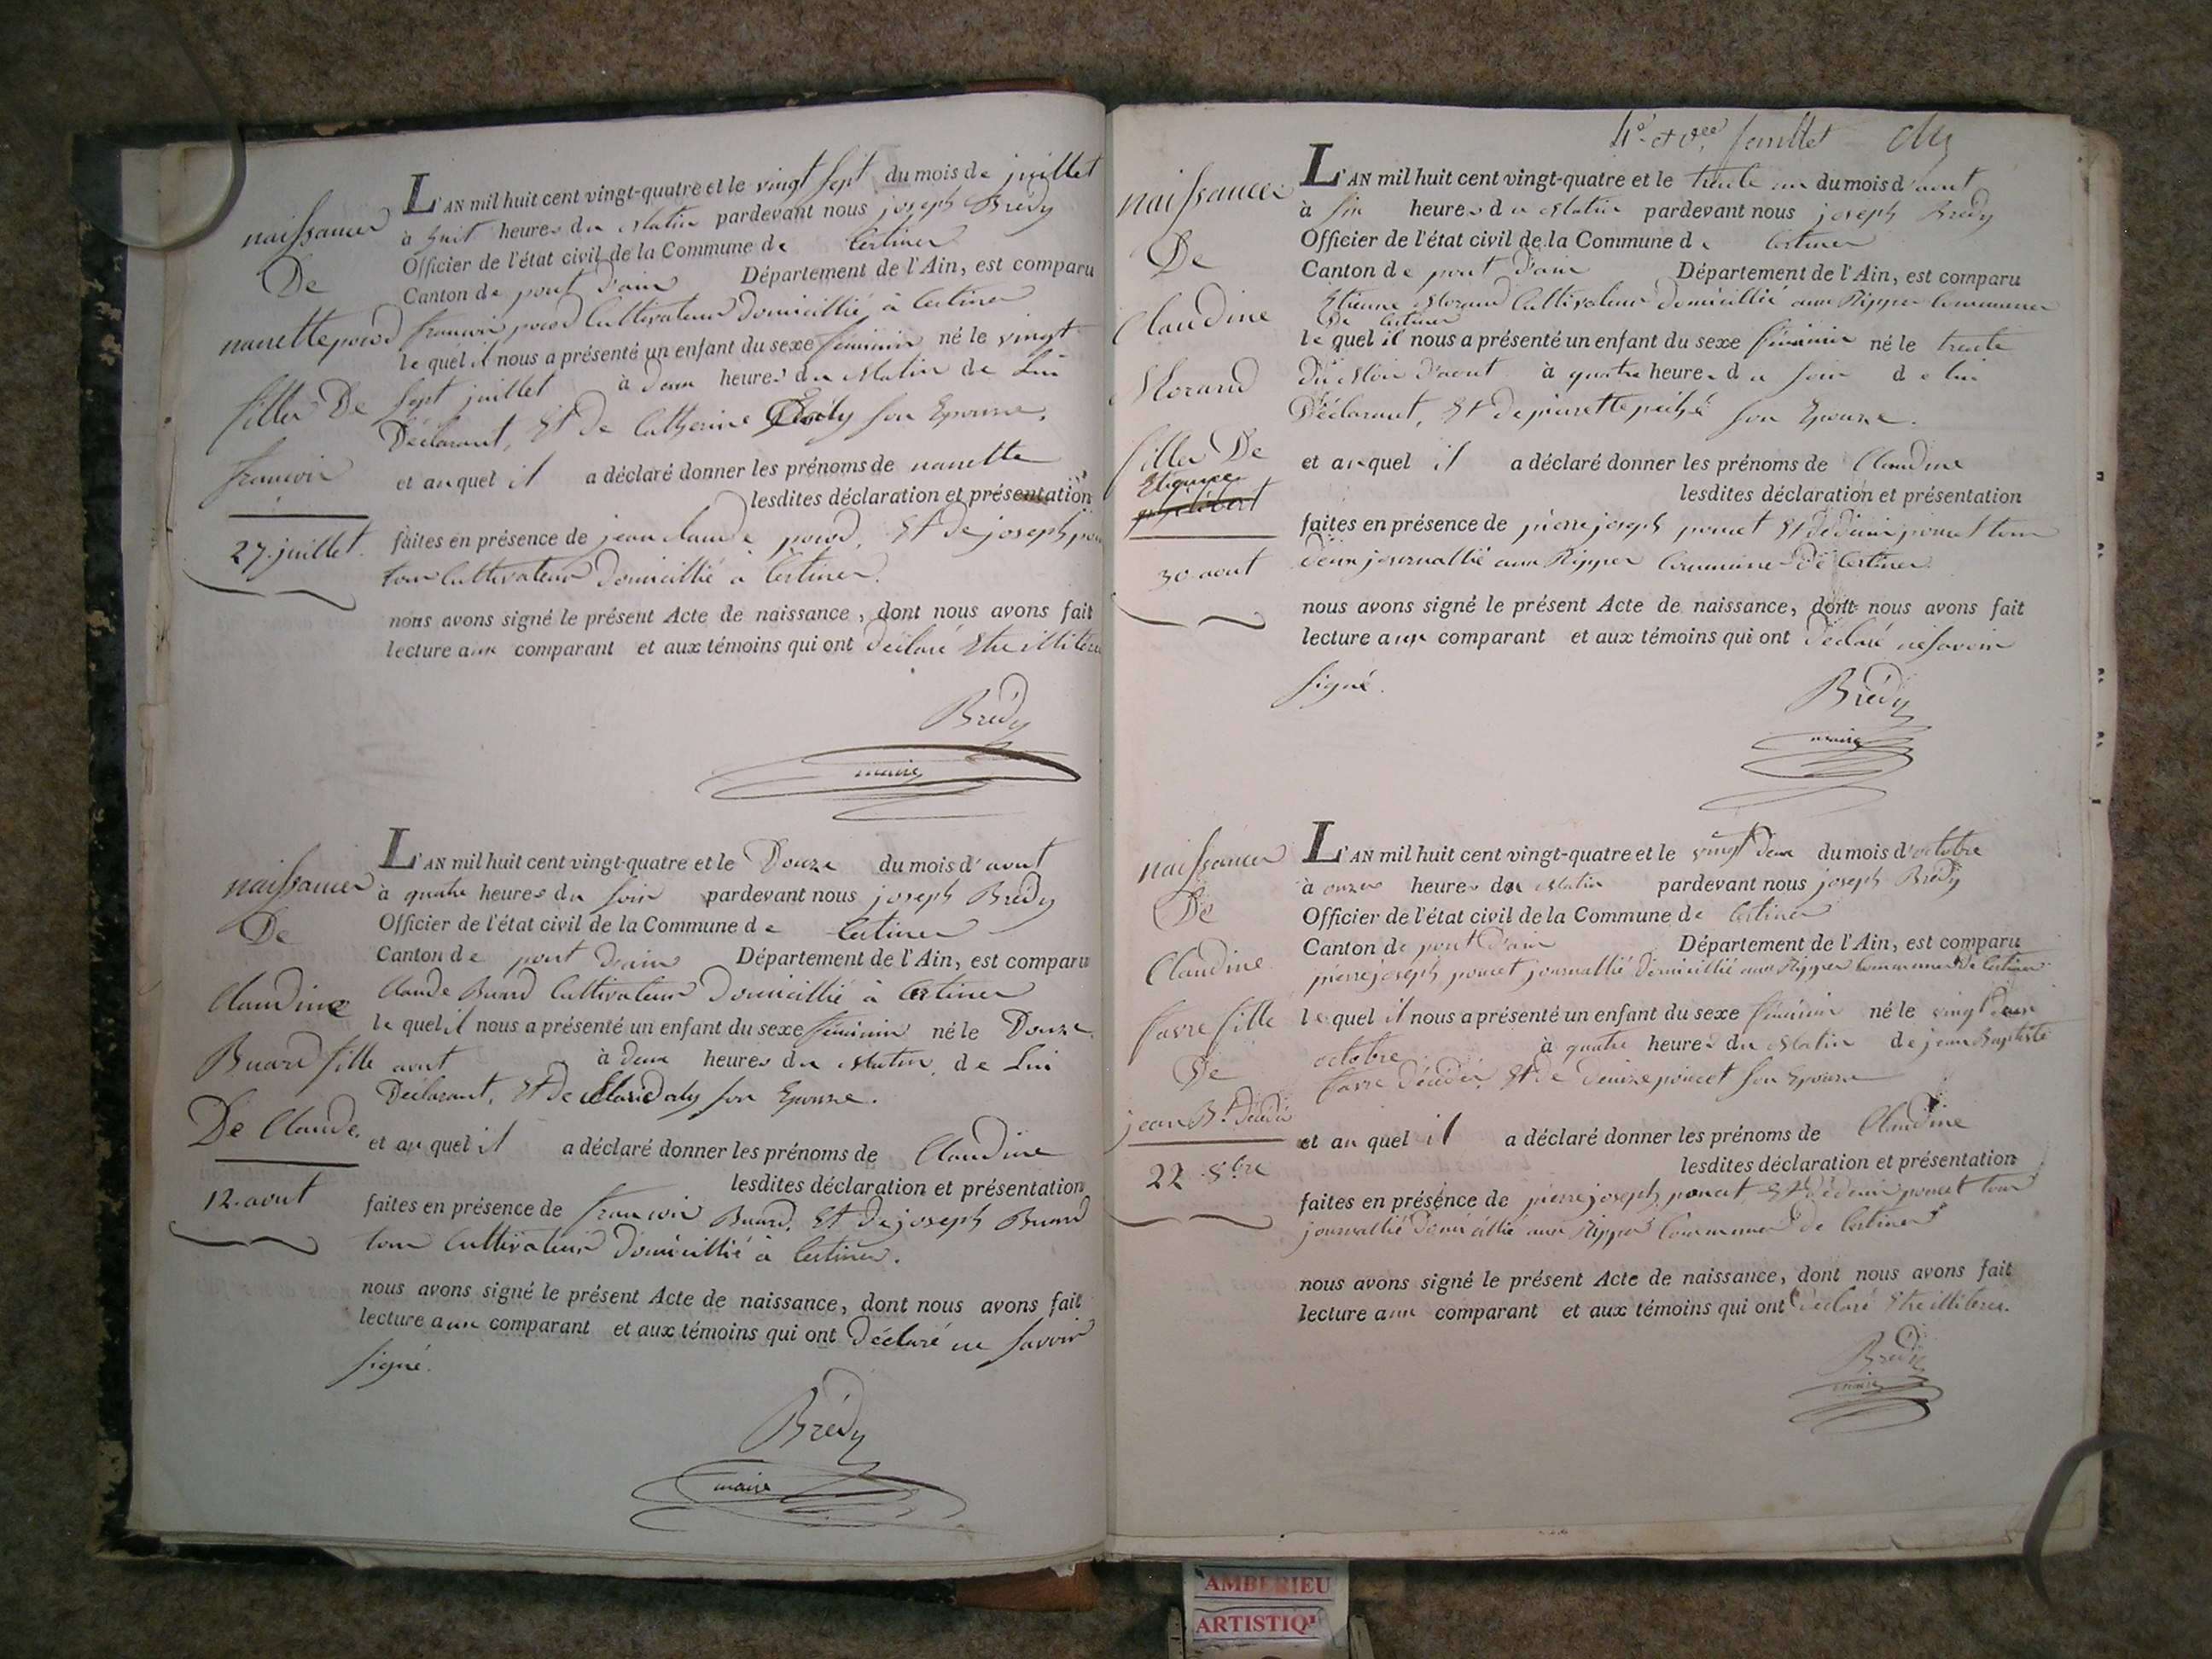 naissance
De
nanette poncet
fille De
francois
27. juillet.
L'AN mil huit cent vingt-quatre et le vingt sept du mois de juillet
à huit heures du Matin pardevant nous joseph Brédy
Officier de l'état civil de la Commune de Certines
Canton de pont d'ain Département de l'Ain, est comparu
francois Cultivateur Domicillié à Certines
lequel il nous a présenté un enfant du sexe feminin né le vingt
Sept juillet à deux heures du Matin de Lui
Déclarant, Et de Catherine son Epouse.
et auquel il a déclaré donner les prénoms de nanette
lesdites déclaration et présentation
faites en présence de jean claude Et de joseph
tous Cultivateurs Domicillié à Certines.
nous avons signé le présent Acte de naissance, dont nous avons fait
lecture aux comparant et aux témoins qui ont Déclaré Etre illitérés
Brédy
maire
naissance
De
Claudine
Buard fille
De Claude.
12. aout
L'AN mil huit cent vingt-quatre et le Douze du mois d'aout
à quatre heures du soir pardevant nous joseph Brédy
Officier de l'état civil de la Commune de Certines
Canton de pont d'ain Département de l'Ain, est comparu
Claude Buard Cultivateur Domicillié à Certines
lequel il nous a présenté un enfant du sexe feminin né le Douze
aout à deux heures du Matin de Lui
Déclarant, Et de son Epouse.
et auquel il a déclaré donner les prénoms de Claudine
lesdites déclaration et présentation
faites en présence de francois Buard. Et de joseph Buard
tous Cultivateurs Domicillié à Certines.
nous avons signé le présent Acte de naissance, dont nous avons fait
lecture aux comparant et aux témoins qui ont Déclaré ne savoir
signé.
Brédy
maire
4e et feuillet
naissance
De
Claudine
Morand
fille De
Etienne
30 aout
L'AN mil huit cent vingt-quatre et le trente un du mois d'aout
à six heures du Matin pardevant nous joseph Brédy
Officier de l'état civil de la Commune de Certines
Canton de pont d'ain Département de l'Ain, est comparu
Etienne Morand Cultivateur Domicillié aux Rippes Commune
De Certines
lequel il nous a présenté un enfant du sexe feminin né le trente
du Mois d'aout à quatre heures du soir de lui
Déclarant, Et de pierrette son Epouse.
et auquel il a déclaré donner les prénoms de Claudine
lesdites déclaration et présentation
faites en présence de pierre joseph poncet Et de denis poncet tous
deux journallié aux Rippes Commune De Certines
nous avons signé le présent Acte de naissance, dont nous avons fait
lecture aux comparant et aux témoins qui ont Déclaré ne savoir
signé.
Brédy
maire
naissance
De
Claudine
favre fille
De
jean Bt décédé
22 8bre
L'AN mil huit cent vingt-quatre et le vingt deux du mois d'octobre
à onze heures du Matin pardevant nous joseph Brédy
Officier de l'état civil de la Commune de Certines
Canton de pont d'ain Département de l'Ain, est comparu
pierre joseph poncet journallié domicillié aux Rippes Commune De Certines
lequel il nous a présenté un enfant du sexe feminin né le vingt deux
octobre à quatre heures du Matin de jean Baptiste
favre Décédé Et de Denize poncet son Epouse
et au quel il a déclaré donner les prénoms de Claudine
lesdites déclaration et présentation
faites en présence de pierre joseph poncet Et de denis poncet tous
journallié domicillié aux Rippes Commune de Certines
nous avons signé le présent Acte de naissance, dont nous avons fait
lecture aux comparant et aux témoins qui ont Déclaré Etre illiterés.
Brédy
maire
AMBERIEU
ARTISTIQ